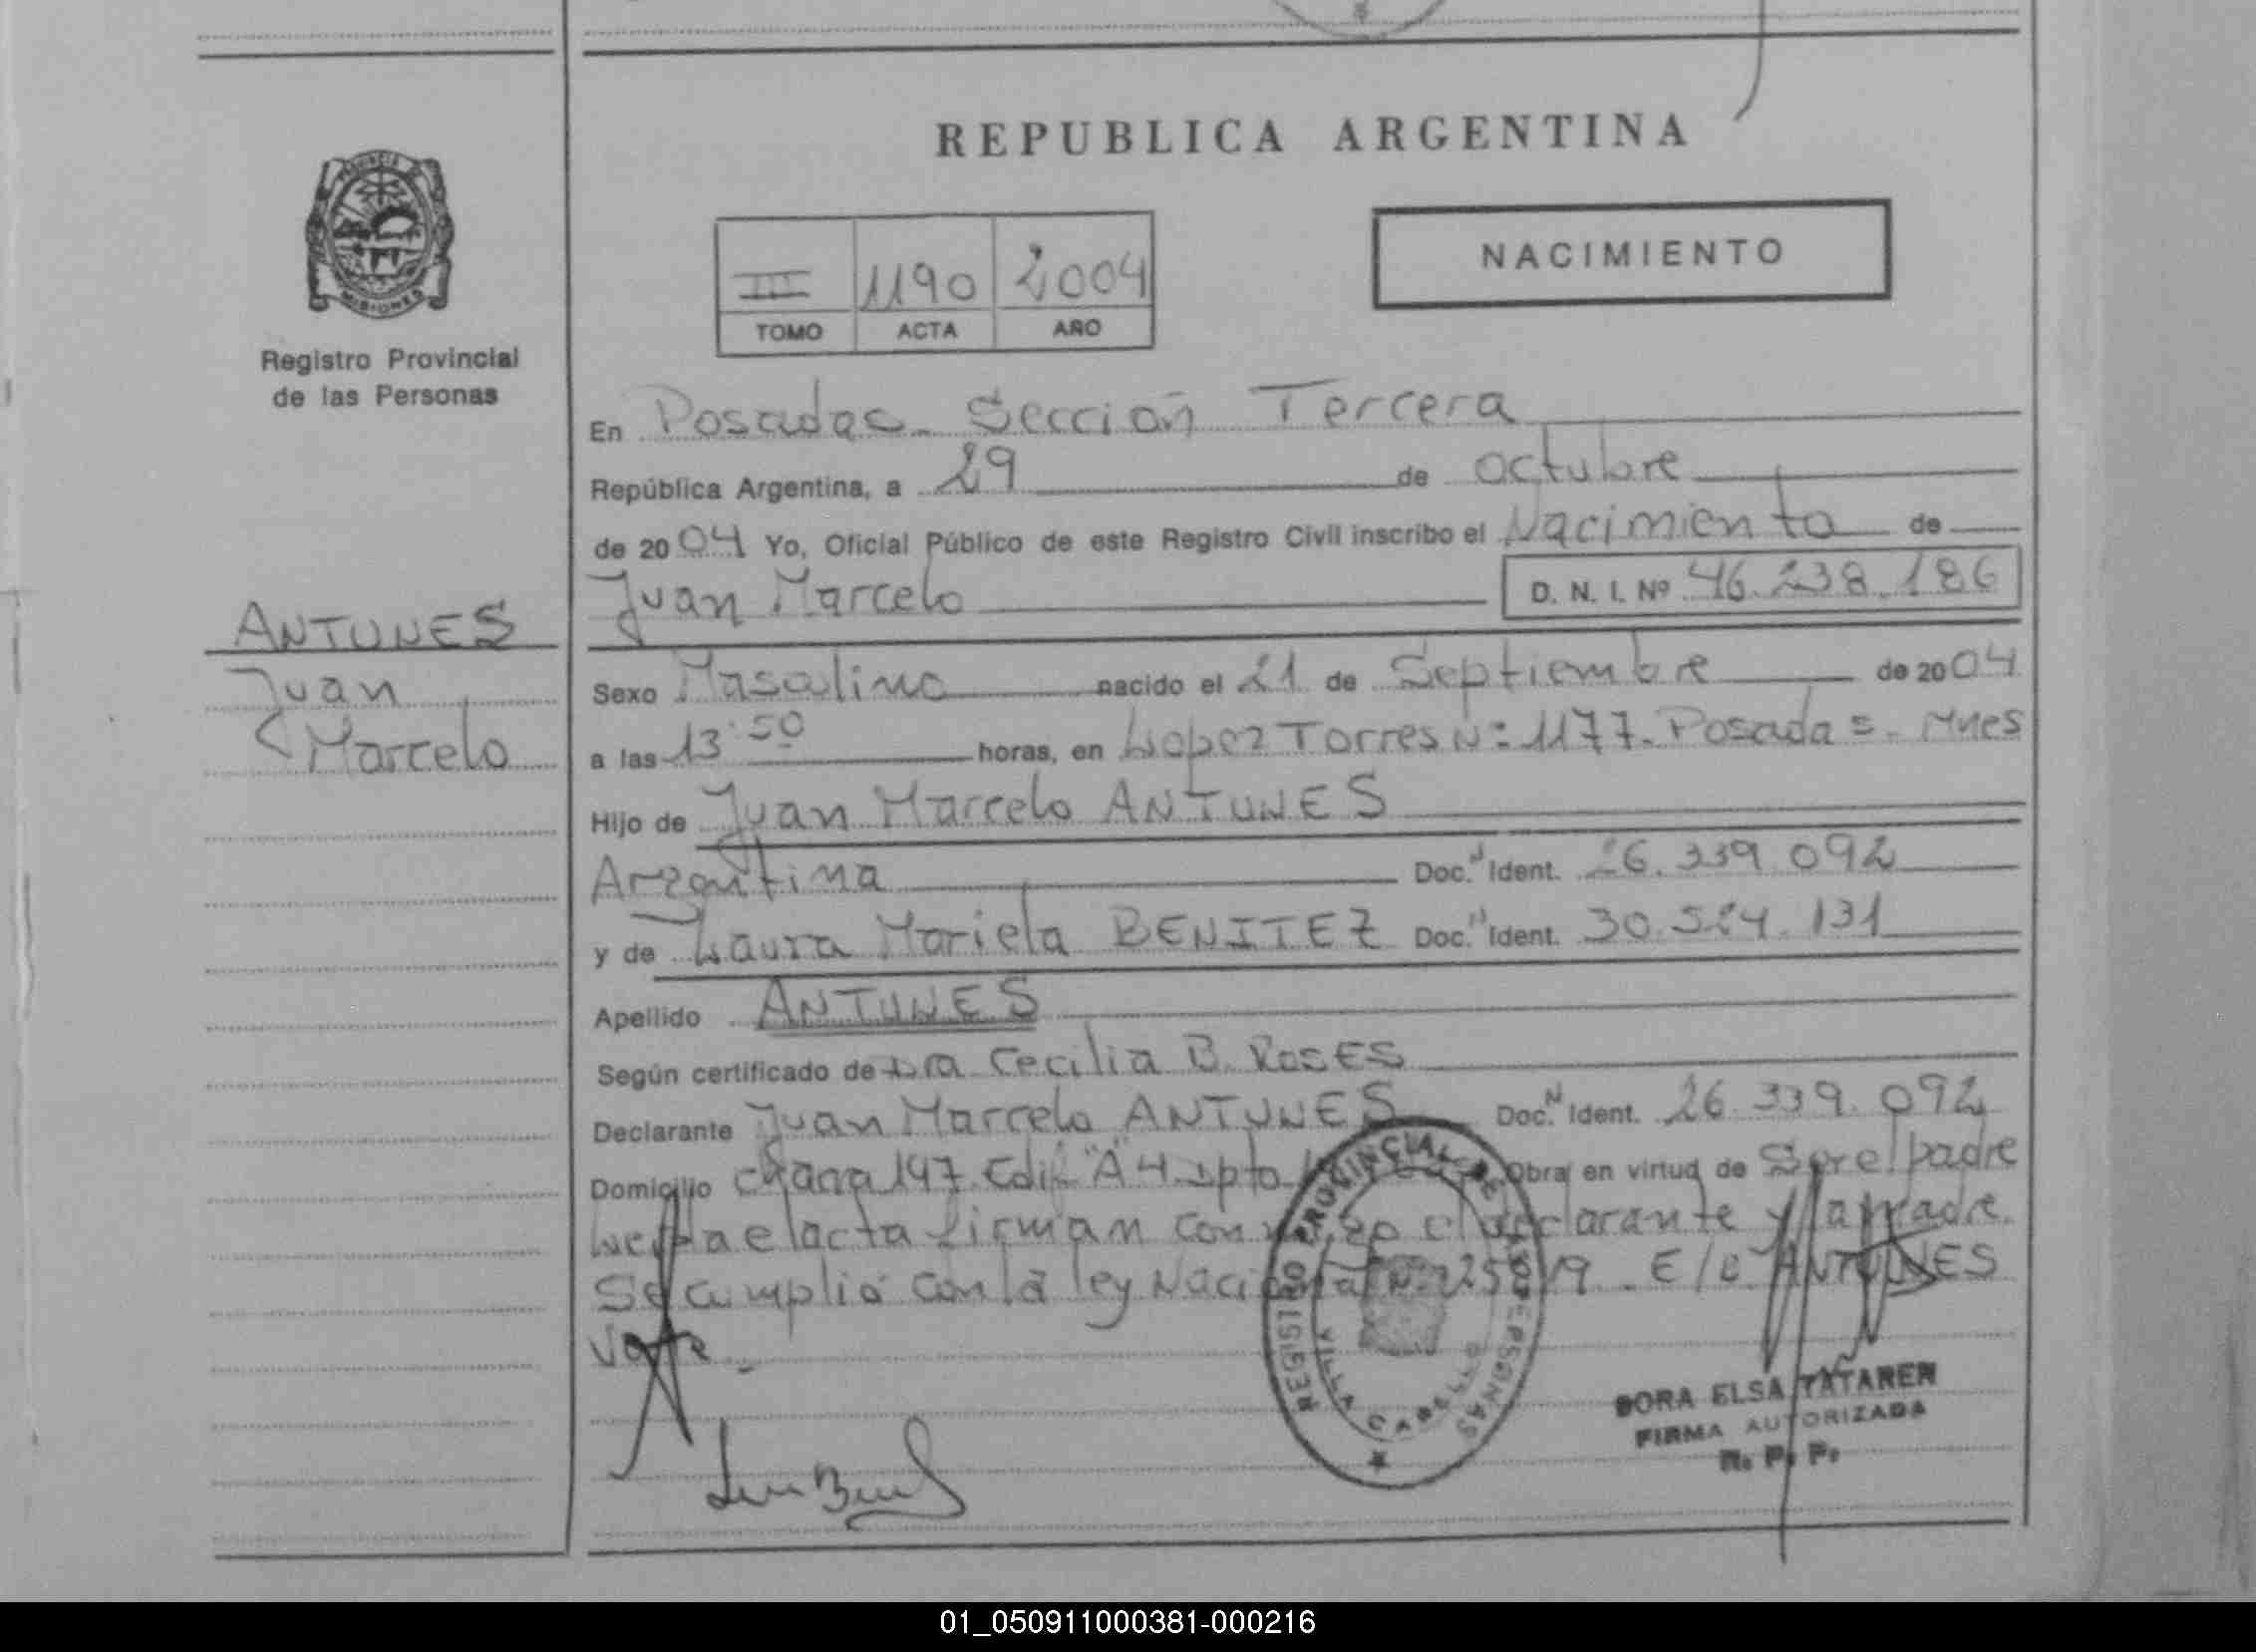 REPUBLICA ARGENTINA
PROVINCIA DE
MISIONES
Registro Provincial
de las Personas
III 1190 2004
TOMO ACTA AÑO
NACIMIENTO
En Posadas - Sección Tercera
República Argentina, a 29 de octubre
de 2004 Yo, Oficial Público de este Registro Civil inscribo el Nacimiento de
Juan Marcelo D. N. I. Nº 46.238.186
ANTUNES
Juan
Marcelo
Sexo Masculino nacido el 21 de Septiembre de 2004
a las 13:50 horas, en Lopez Torres Nº 1177. Posadas - Mnes
Hijo de Juan Marcelo ANTUNES
Argentina Doc.N Ident. 26.339.092
y de Laura Mariela BENITEZ Doc.N Ident. 30.524.131
Apellido ANTUNES
Según certificado de Dra Cecilia B. RosES
Declarante Juan Marcelo ANTUNES Doc.N Ident. 26.339.092
Domicilio chacra 147 Edif "A" 4 Dpto Obra en virtud de Ser el padre
Leida el acta firman conmigo el declarante y la madre.
Se cumplió con la ley Nacional Nº 25819. E/L ANTUNES
Vale.
REGISTRO PROVINCIAL DE LAS PERSONAS
VILLA CABELLO
DORA ELSA TATAREN
FIRMA AUTORIZADA
R. P. P.
01_050911000381-000216